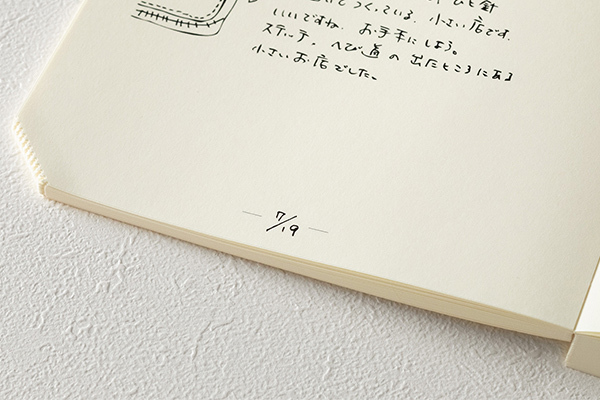 ひと針
つくっている、小さい店です。
いいですね。お手本にしよう。
ステッチ。へび道の出たところにある
小さいお店でした。
7/19